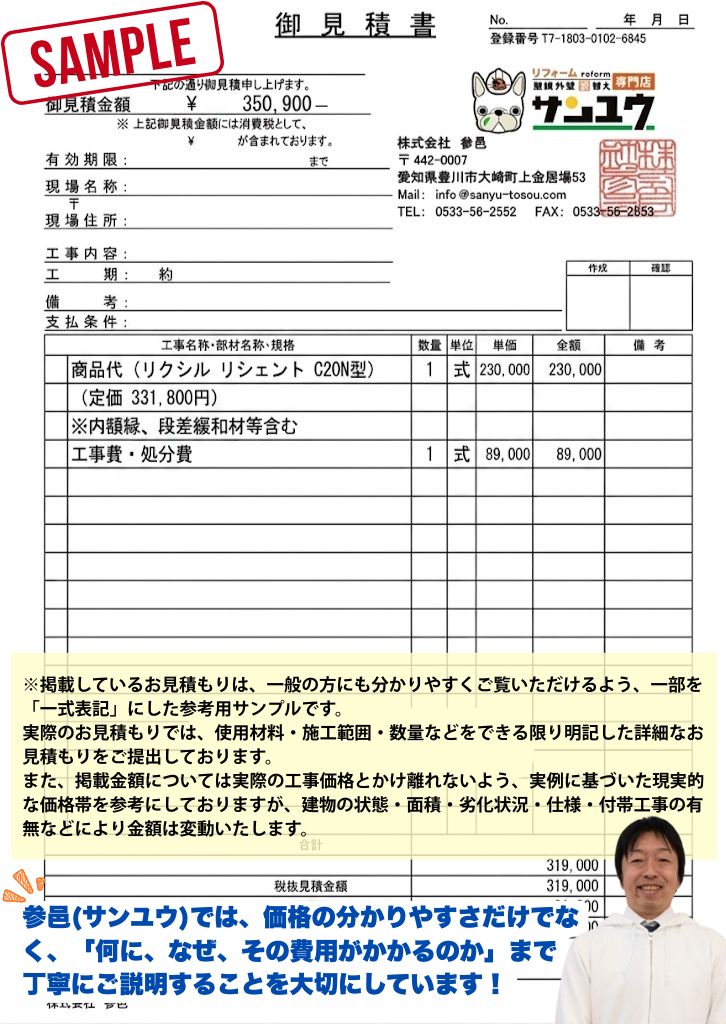 SAMPLE
御見積書
No. 年 月 日
登録番号 T7-1803-0102-6845
下記の通り御見積申し上げます。
御見積金額 ￥ 350,900―
※ 上記御見積金額には消費税として、
￥ が含まれております。
リフォーム reform
専門店
サンユウ
株式会社 參邑
〒442-0007
愛知県豊川市大崎町上金居場53
Mail: info@sanyu-tosou.com
TEL: 0533-56-2552 FAX: 0533-56-2853
有効期限： まで
現場名称：
〒
現場住所：
工事内容：
工期： 約
備考：
支払条件：
作成 確認
工事名称・部材名称、規格 数量 単位 単価 金額 備考
商品代（リクシル リシェント C20N型） 1 式 230,000 230,000
（定価 331,800円）
※内額縁、段差緩和材等含む
工事費・処分費 1 式 89,000 89,000
※掲載しているお見積もりは、一般の方にも分かりやすくご覧いただけるよう、一部を
「一式表記」にした参考用サンプルです。
実際のお見積もりでは、使用材料・施工範囲・数量などをできる限り明記した詳細なお
見積もりをご提出しております。
また、掲載金額については実際の工事価格とかけ離れないよう、実例に基づいた現実的
な価格帯を参考にしておりますが、建物の状態・面積・劣化状況・仕様・付帯工事の有
無などにより金額は変動いたします。
合計
319,000
税抜見積金額 319,000
参邑(サンユウ)では、価格の分かりやすさだけでな
く、「何に、なぜ、その費用がかかるのか」まで
丁寧にご説明することを大切にしています！
株式会社 參邑